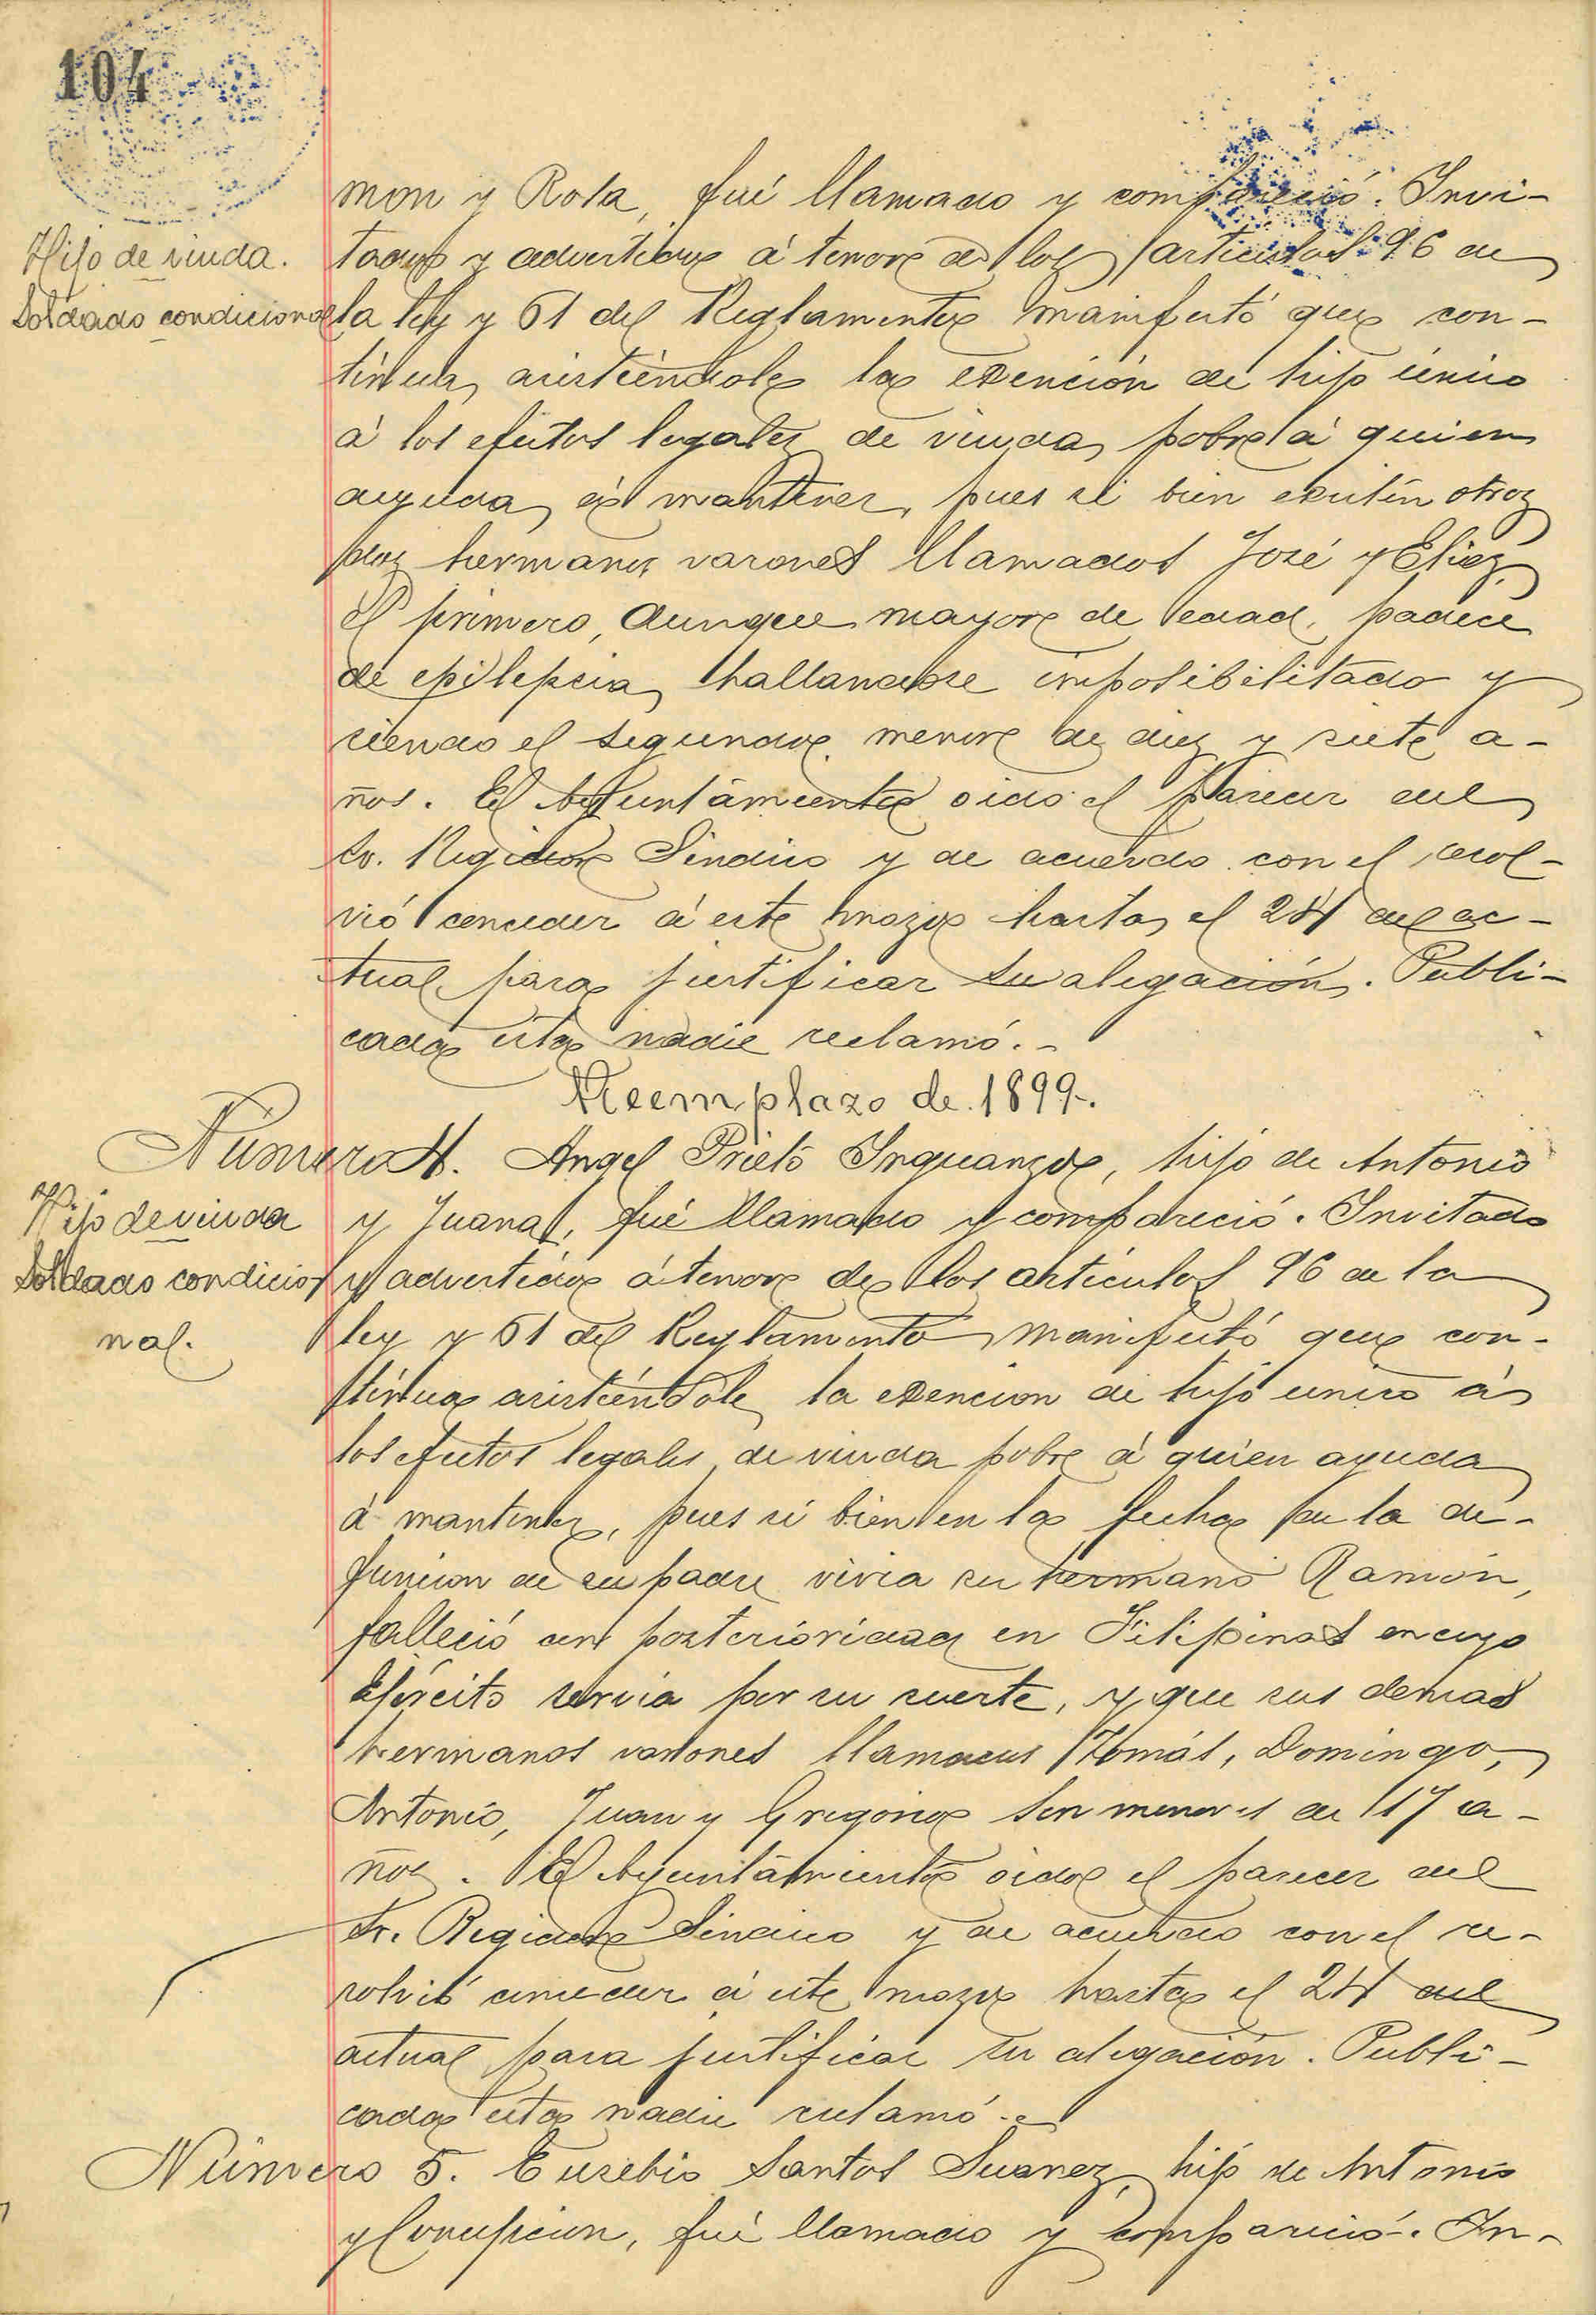 104
mon y Rosa, fué llamado y compareció. Invi-
Hijo de viuda.
tado y advertido á tenor de los artículos 96 de
Soldado condicional
la ley y 61 del Reglamento manifestó que con-
tinua asistiéndole la exención de hijo único
á los efectos legales de viuda pobre á quien
ayuda á mantener, pues si bien existen otros
dos hermanos varones llamados José y Elías,
el primero, aunque mayor de edad, padece
de epilepsia hallandose imposibilitado y
siendo el segundo menor de diez y siete a-
ños. El Ayuntamiento oido el parecer del
Sr. Regidor Sindico y de acuerdo con el resol-
vió conceder á este mozo hasta el 24 del ac-
tual para justificar su alegación. Publi-
cada esta nadie reclamó.-
Reemplazo de 1899.
Número 4. Angel Prieto Inguanzo, hijo de Antonio
Hijo de viuda
y Juana, fué llamado y compareció. Invitado
Soldado condicio
y advertido á tenor de los artículos 96 de la
nal.
ley y 61 del Reglamento manifestó que con-
tinua asistiéndole la exencion de hijo unico á
los efectos legales de viuda pobre á quien ayuda
á mantener, pues si bien en la fecha de la de-
funcion de su padre vivia su hermano Ramón,
falleció con posterioridad en Filipinas en cuyo
Ejército servia por su suerte, y que sus demas
hermanos varones llamados Tomás, Domingo,
Antonio, Juan y Gregorio son menores de 17 a-
ños. El Ayuntamiento oido el parecer del
Sr. Regidor Sindico y de acuerdo con el re-
solvió conceder á este mozo hasta el 24 del
actual para justificar su alegación. Publi-
cada esta nadie reclamó.-
Número 5. Eusebio Santos Suarez, hijo de Antonio
y Concepcion, fué llamado y compareció. In-